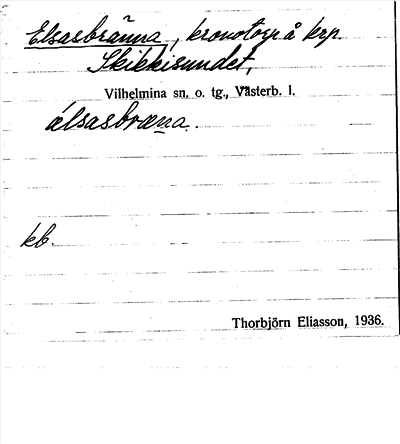 Elsasbränna, kronotorp å krp.
Skikkisundet,
Vilhelmina sn. o. tg., Västerb. l.
álsasbræna.
kb.
Thorbjörn Eliasson, 1936.